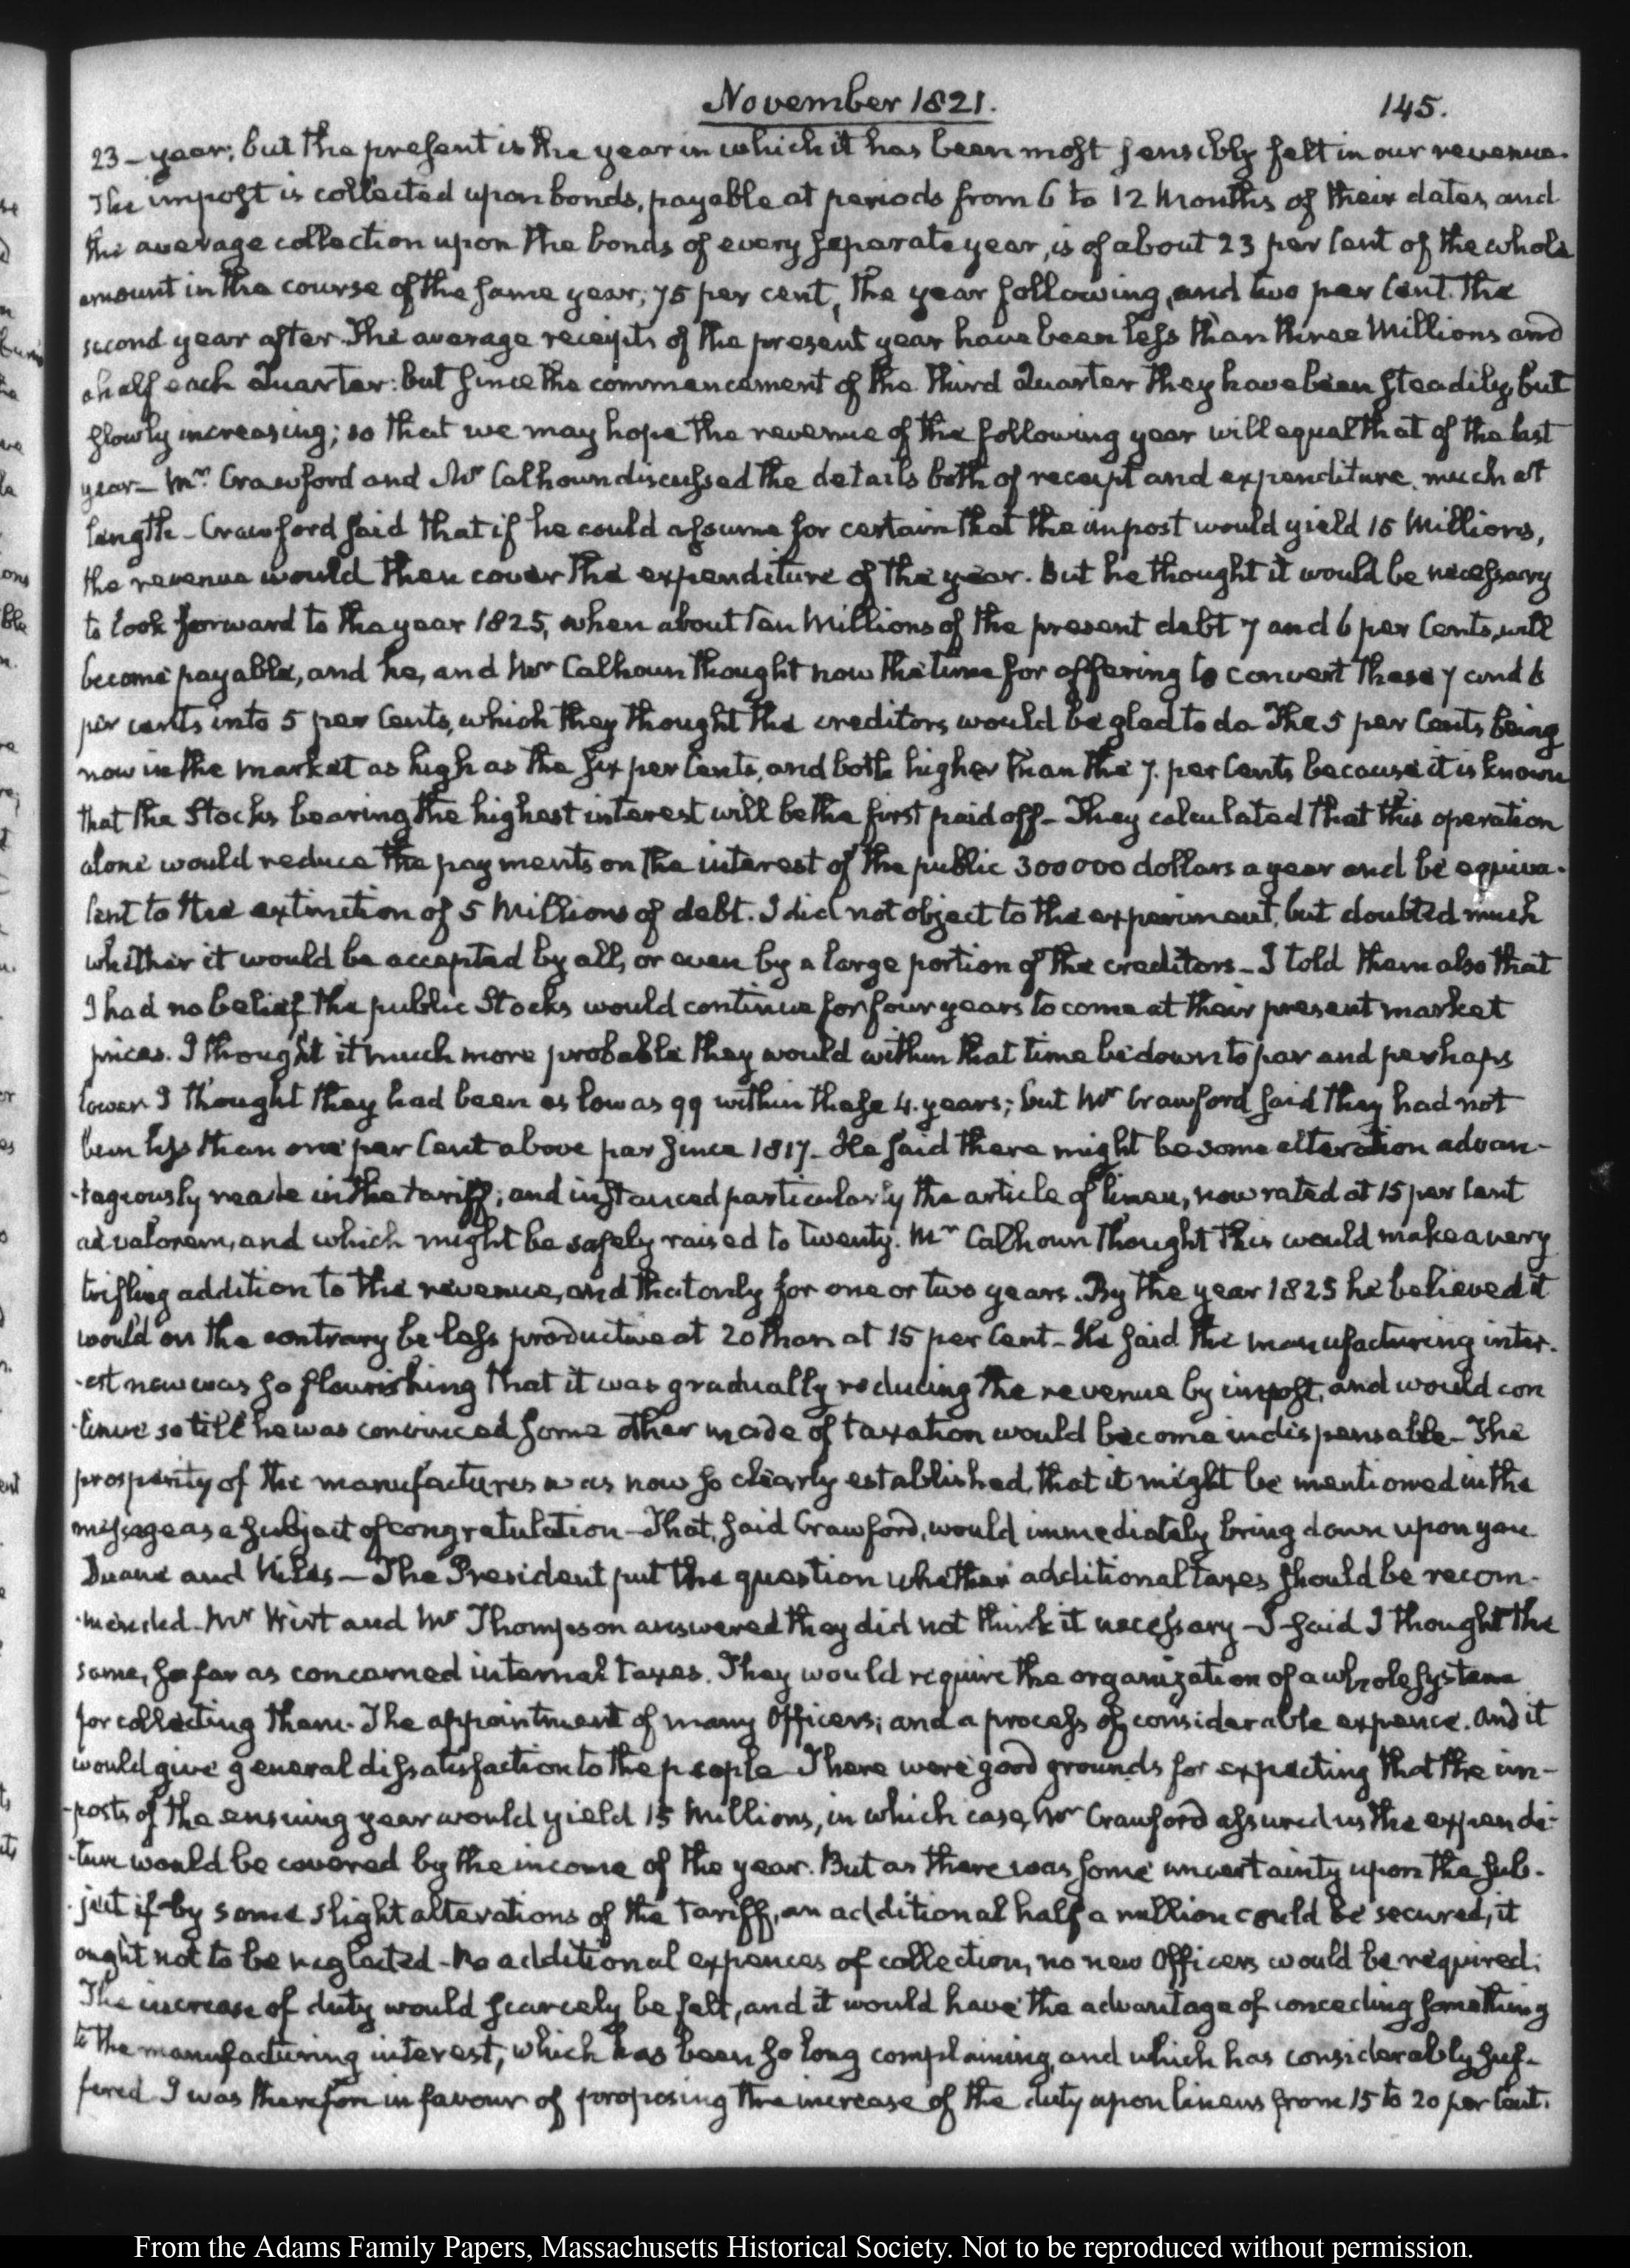 November 1821. 145.
23 - year; but the present is the year in which it has been most sensibly felt in our revenue.
The impost is collected upon bonds, payable at periods from 6 to 12 Months of their dates, and
the average collection upon the bonds of every separate year, is of about 23 per Cent of the whole
amount in the course of the same year; 75 per cent, the year following, and two per Cent. the
second year after. The average receipts of the present year have been less than three Millions and
a half each Quarter: but since the commencement of the third Quarter they have been steadily, but
slowly increasing; so that we may hope the revenue of the following year will equal that of the last
year - Mr. Crawford and Mr Calhoun discussed the details both of receipt and expenditure, much at
length - Crawford said that if he could assume for certain that the impost would yield 15 Millions,
the revenue would then cover the expenditure of the year. But he thought it would be necessary
to look forward to the year 1825, when about ten Millions of the present debt 7 and 6 per Cents, will
become payable, and he, and Mr Calhoun thought now the time for offering to convert these 7 and 6
per cents into 5 per Cents, which they thought the creditors would be glad to do The 5 per Cents being
now in the market as high as the six per Cents, and both higher than the 7. per Cents because it is known
that the Stocks bearing the highest interest will be the first paid off - They calculated that this operation
alone would reduce the payments on the interest of the public 300000 dollars a year and be equiva-
lent to the extinction of 5 Millions of debt. I did not object to the experiment, but doubted much
whether it would be accepted by all, or even by a large portion of the creditors - I told them also that
I had no belief the public Stocks would continue for four years to come at their present market
prices. I thought it much more probable they would within that time be down to par and perhaps
lower I thought they had been as low as 99 within these 4. years; but Mr Crawford said they had not
been less than one per Cent above par since 1817 - He said there might be some alteration advan-
-tageously made in the tariff; and instanced particularly the article of linen, now rated at 15 per Cent
ad valorem, and which might be safely raised to twenty. Mr Calhoun thought this would make a very
trifling addition to the revenue, and that only for one or two years. By the year 1825 he believed it
would on the contrary be less productive at 20 than at 15 per Cent - He said the manufacturing inter-
-est now was so flourishing that it was gradually reducing the revenue by impost, and would con
-tinue so till he was convinced some other mode of taxation would become indispensable - The
prosperity of the manufactures was now so clearly established, that it might be mentioned in the
message as a subject of congratulation - That, said Crawford, would immediately bring down upon you
Duane and Niles - The President put the question whether additional taxes should be recom-
-mended - Mr Wirt and Mr Thompson answered they did not think it necessary - I said I thought the
same, so far as concerned internal taxes. They would require the organization of a whole system
for collecting them. The appointment of many Officers; and a process of considerable expence. And it
would give general dissatisfaction to the people There were good grounds for expecting that the im-
-posts of the ensuing year would yield 15 Millions, in which case, Mr Crawford assured us the expendi-
-ture would be covered by the income of the year. But as there was some uncertainty upon the sub-
-ject if by some slight alterations of the Tariff, an additional half a million could be secured, it
ought not to be neglected - No additional expences of collection, no new Officers would be required;
The increase of duty would scarcely be felt, and it would have the advantage of conceding something
to the manufacturing interest, which has been so long complaining, and which has considerably suf-
fered I was therefore in favour of proposing the increase of the duty upon linens from 15 to 20 per Cent.
From the Adams Family Papers, Massachusetts Historical Society. Not to be reproduced without permission.